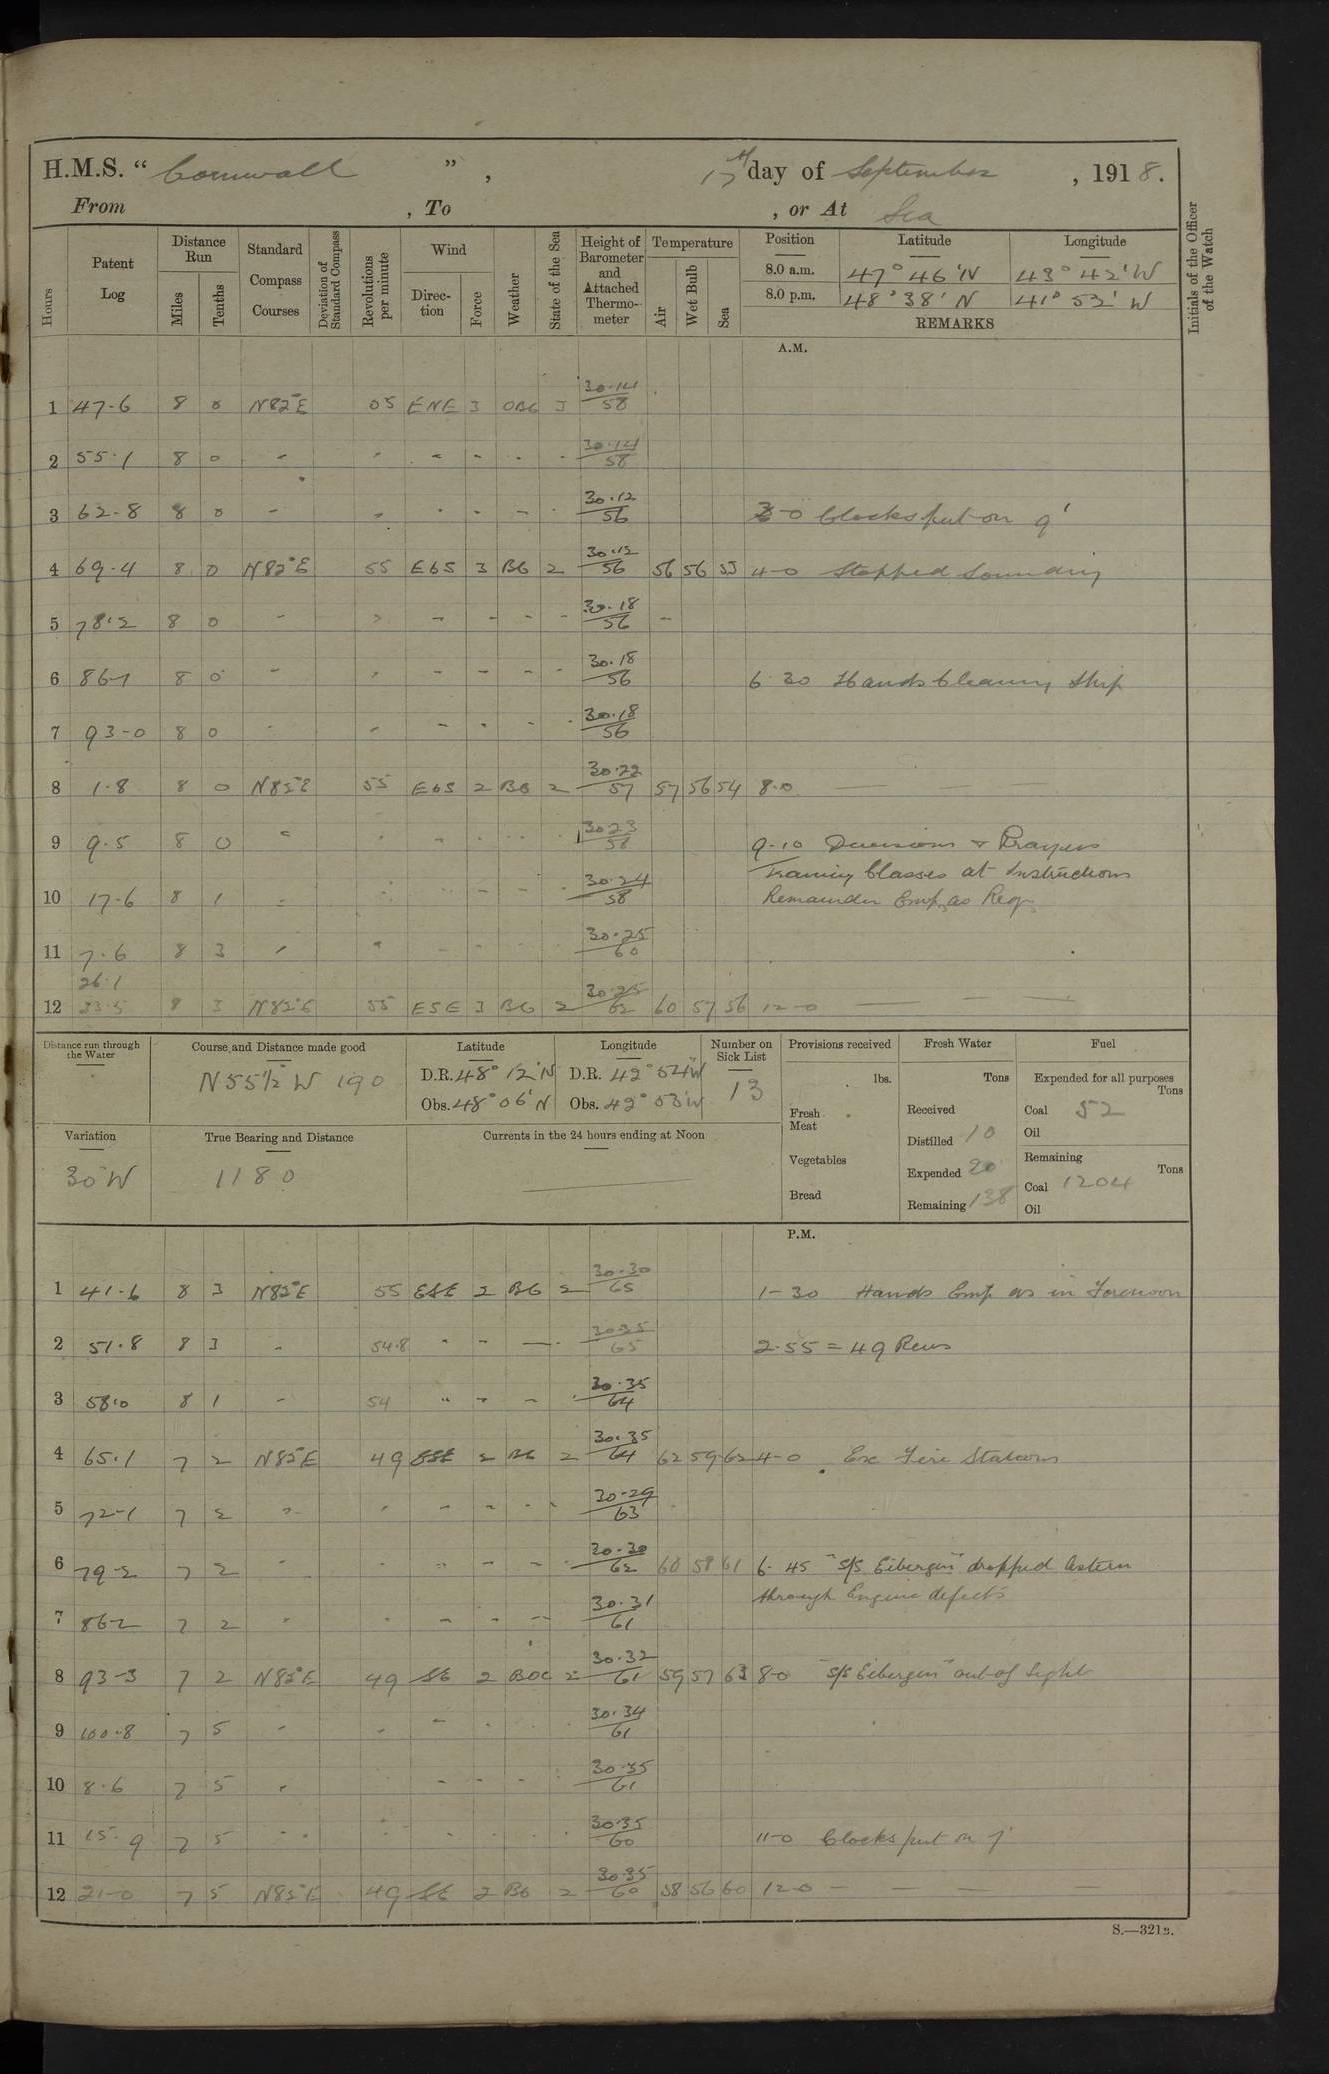 H.M.S. "Cornwall", 17th day of September, 1918.
From , To , or At Sea
Hours
Patent Log
Distance Run
Miles
Tenths
Standard Compass Courses
Deviation of Standard Compass
Revolutions per minute
Wind
Direction
Force
Weather
State of the Sea
Height of Barometer and Attached Thermometer
Temperature
Air
Wet Bulb
Sea
Position Latitude Longitude
8.0 a.m. 47° 46' N 43° 42' W
8.0 p.m. 48° 38' N 41° 53' W
REMARKS
Initials of the Officer of the Watch
A.M.
1 47.6 8 0 N82°E 55 ENE 3 OBC 30.14/58
2 55.1 8 0 " " " " " " 30.14/58
3 62.8 8 0 " " " " " 30.12/56 3-0 Clocks put on 9'
4 69.4 8 0 N82°E 55 EbS 3 BC 2 30.12/56 56 56 55 4-0 Stopped Sounding
5 78.2 8 0 " " " " " " 30.18/56 -
6 86.1 8 0 " " " " " " 30.18/56 6.30 Hands Cleaning Ship
7 93-0 8 0 " " " " " " 30.18/56
8 1.8 8 0 N82°E 55 EbS 2 BC 2 30.22/57 57 56 54 8.0 — — —
9 9.5 8 0 " " " " " " 30.23/58 9-10 Divisions & Prayers
Training Classes at Instructions
10 17.6 8 1 " " " " " " 30.24/58 Remainder Emp. as Req.
11 7.6 8 3 " " " " " 30.25/60
26.1
12 33.5 8 3 N82°E 55 ESE 3 BC 2 30.25/62 60 57 56 12-0 — — —
Distance run through the Water
Course and Distance made good
N 55½ W 190
Latitude
D.R. 48° 12' N
Obs. 48° 06' N
Longitude
D.R. 42° 54' W
Obs. 42° 53' W
Number on Sick List
13
Provisions received
lbs.
Fresh Meat
Vegetables
Bread
Fresh Water
Tons
Received
Distilled 10
Expended 20
Remaining 138
Fuel
Expended for all purposes
Tons
Coal 52
Oil
Remaining
Tons
Coal 1204
Oil
Variation
30° W
True Bearing and Distance
1180
Currents in the 24 hours ending at Noon
P.M.
1 41.6 8 3 N82°E 55 ESE 2 BC 2 30.30/65 1-30 Hands Emp. as in Forenoon
2 51.8 8 3 " 54.8 " " — 30.35/65 2.55 = 49 Revs
3 58.0 8 1 " 54 " " " 30.35/64
4 65.1 7 2 N82°E 49 ESE 2 BC 2 30.35/64 62 59 62 4-0 Exc Fire Stations
5 72-1 7 2 " " " " " " 30.29/63
6 79-2 7 2 " " " " " " 30.30/62 60 58 61 6-45 "S/S Eibergen" dropped Astern
through Engine defects
7 86-2 7 2 " " " " " 30.31/61
8 93-3 7 2 N82°E 49 SE 2 BOC 2 30.32/61 59 57 63 8-0 "S/S Eibergen" out of Sight
9 100.8 7 5 " " " " " 30.34/61
10 8.6 7 5 " " " " 30.35/61
11 15.9 7 5 " " " " " 30.35/60 11-0 Clocks put on 7'
12 21-0 7 5 N82°E 49 SE 2 BC 2 30.35/60 58 56 60 12-0 — — — —
S.—321B.